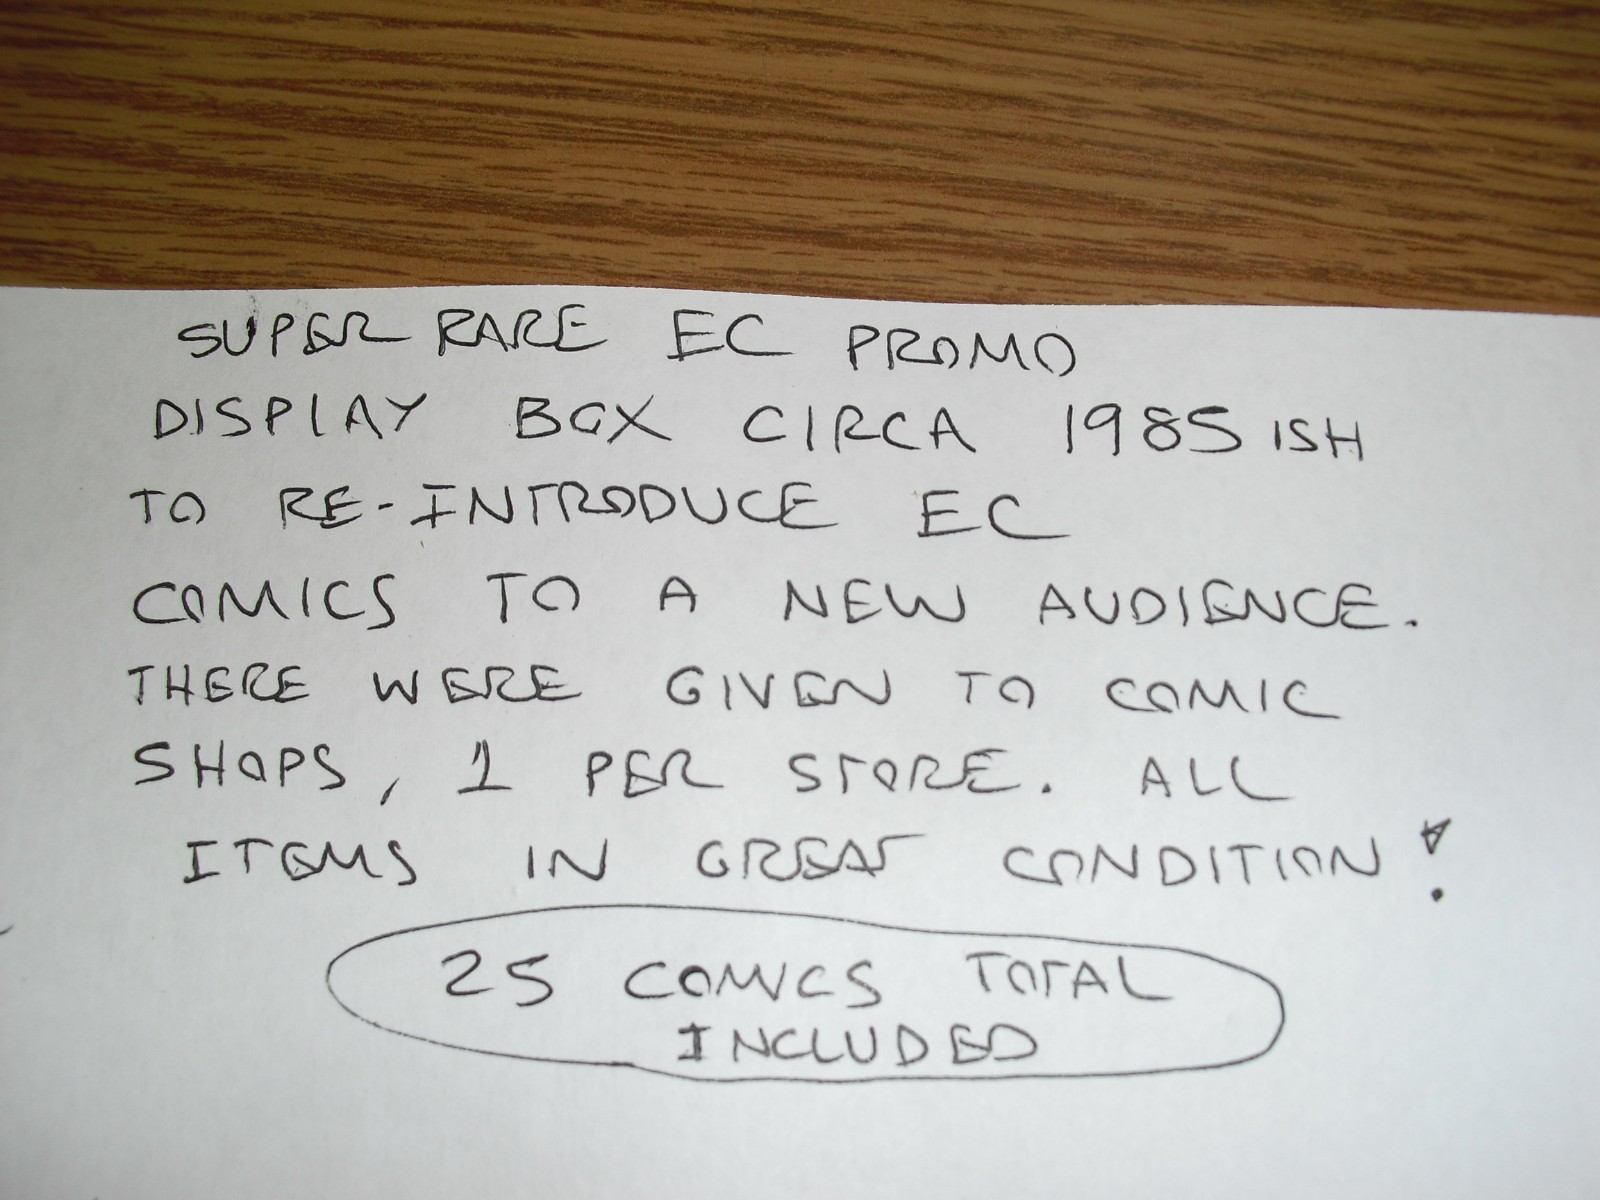 SUPER RARE EC PROMO
DISPLAY BOX CIRCA 1985 ISH
TO RE-INTRODUCE EC
COMICS TO A NEW AUDIENCE.
THERE WERE GIVEN TO COMIC
SHOPS, 1 PER STORE. ALL
ITEMS IN GREAT CONDITION!
25 COMICS TOTAL
INCLUDED